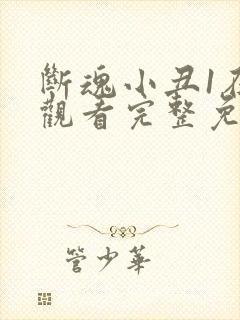 斷魂小丑1
觀看完整免
管少華